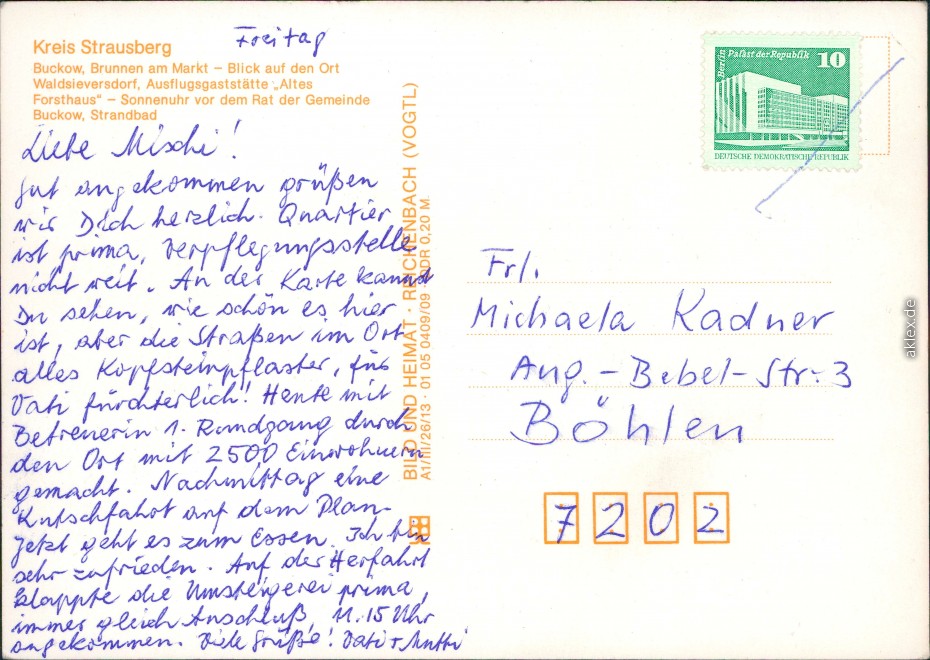 Freitag
Kreis Strausberg
Buckow, Brunnen am Markt – Blick auf den Ort
Waldsieversdorf, Ausflugsgaststätte „Altes
Forsthaus“ – Sonnenuhr vor dem Rat der Gemeinde
Buckow, Strandbad
Liebe Mischi!
gut angekommen grüßen
wir Dich herzlich. Quartier
ist prima, Verpflegungsstelle
nicht weit. An der Karte kannst
Du sehen, wie schön es hier
ist, aber die Straßen im Ort
alles Kopfsteinpflaster, für
Vati fürchterlich! Heute mit
Betreuerin 1. Rundgang durch
den Ort mit 2500 Einwohnern
gemacht. Nachmittag eine
Kutschfahrt auf dem Plan.
Jetzt geht es zum Essen. Ich bin
sehr zufrieden. Auf der Herfahrt
klappte die Umsteigerei prima,
immer gleich Anschluß, 11.15 Uhr
angekommen. Viele Grüße! Vati + Mutti
BILD UND HEIMAT · REICHENBACH (VOGTL)
A1/III/26/13 · 01 05 0409/09 · DDR 0,20 M
Berlin Palast der Republik 10
DEUTSCHE DEMOKRATISCHE REPUBLIK
Frl.
Michaela Kadner
Aug.-Bebel-Str. 3
Böhlen
7202
aklex.de